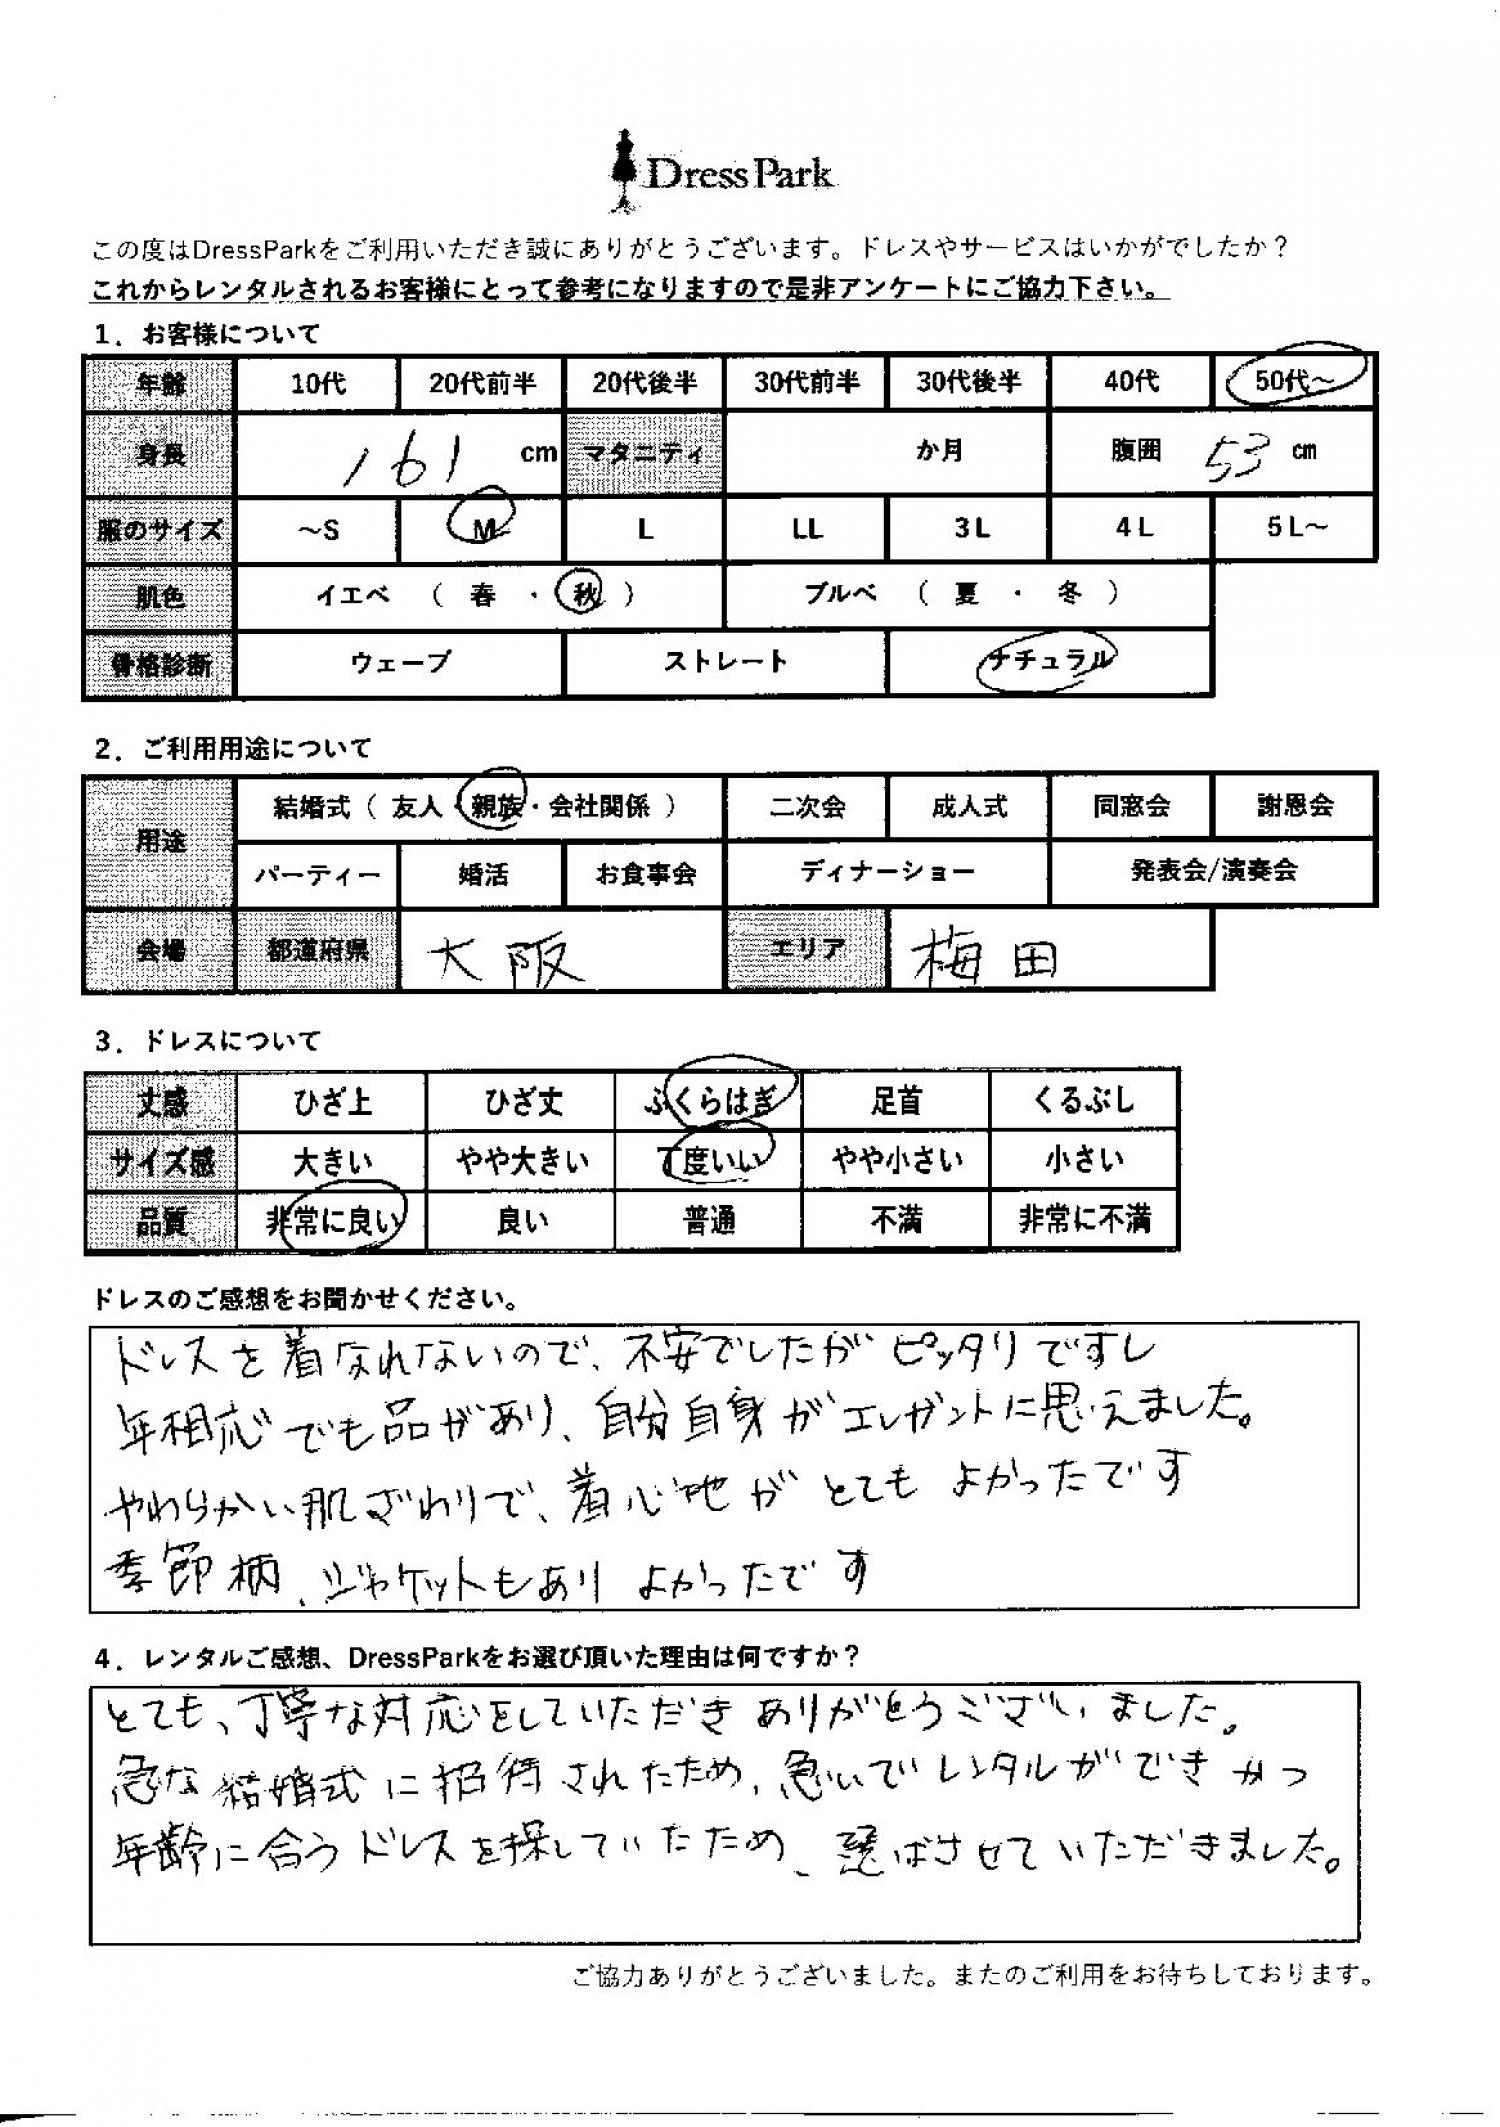 DressPark
この度はDressParkをご利用いただき誠にありがとうございます。ドレスやサービスはいかがでしたか？
これからレンタルされるお客様にとって参考になりますので是非アンケートにご協力下さい。
1．お客様について
年齢 10代 20代前半 20代後半 30代前半 30代後半 40代 50代～
身長 161 cm マタニティ か月 腹囲 53 cm
服のサイズ ～S M L LL 3L 4L 5L～
肌色 イエベ （ 春 ・ 秋 ） ブルベ （ 夏 ・ 冬 ）
骨格診断 ウェーブ ストレート ナチュラル
2．ご利用用途について
用途 結婚式（ 友人・親族・会社関係 ） 二次会 成人式 同窓会 謝恩会
パーティー 婚活 お食事会 ディナーショー 発表会/演奏会
会場 都道府県 大阪 エリア 梅田
3．ドレスについて
丈感 ひざ上 ひざ丈 ふくらはぎ 足首 くるぶし
サイズ感 大きい やや大きい 丁度いい やや小さい 小さい
品質 非常に良い 良い 普通 不満 非常に不満
ドレスのご感想をお聞かせください。
ドレスを着なれないので、不安でしたがピッタリですし
年相応でも品があり、自分自身がエレガントに思えました。
やわらかい肌ざわりで、着心地がとてもよかったです
季節柄、ジャケットもありよかったです
4．レンタルご感想、DressParkをお選び頂いた理由は何ですか？
とても、丁寧な対応をしていただきありがとうございました。
急な結婚式に招待されたため、急いでレンタルができかつ
年齢に合うドレスを探していたため、選ばさせていただきました。
ご協力ありがとうございました。またのご利用をお待ちしております。